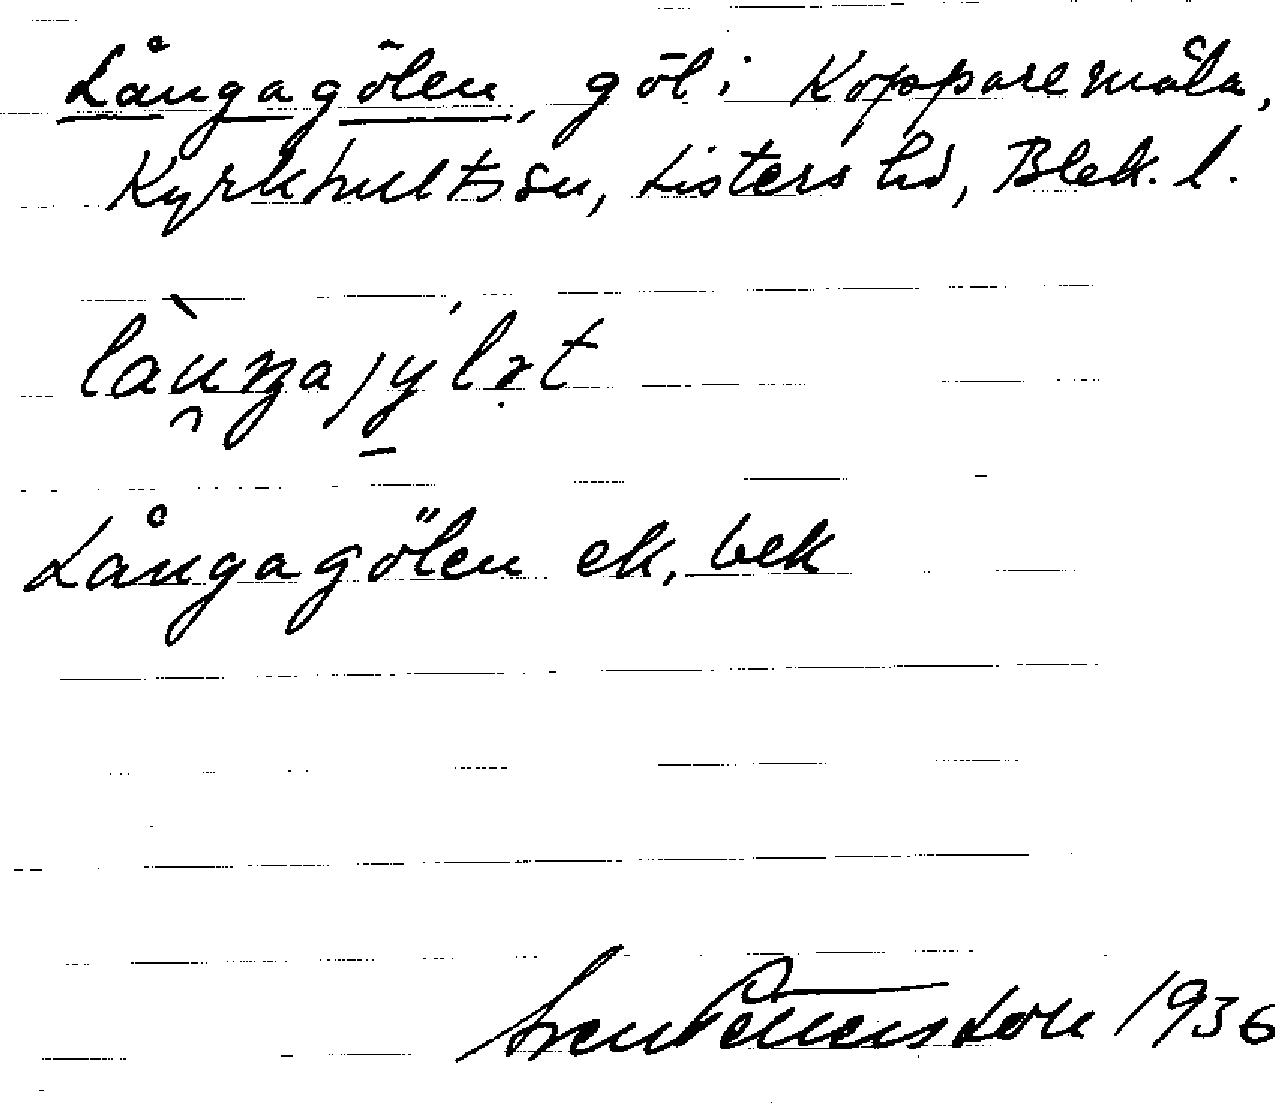 Långagölen, göl i Kopparemåla,
Kyrkhults sn, Listers hd, Blek. l.
Långagölen ek, bek
Sven Pettersson 1936